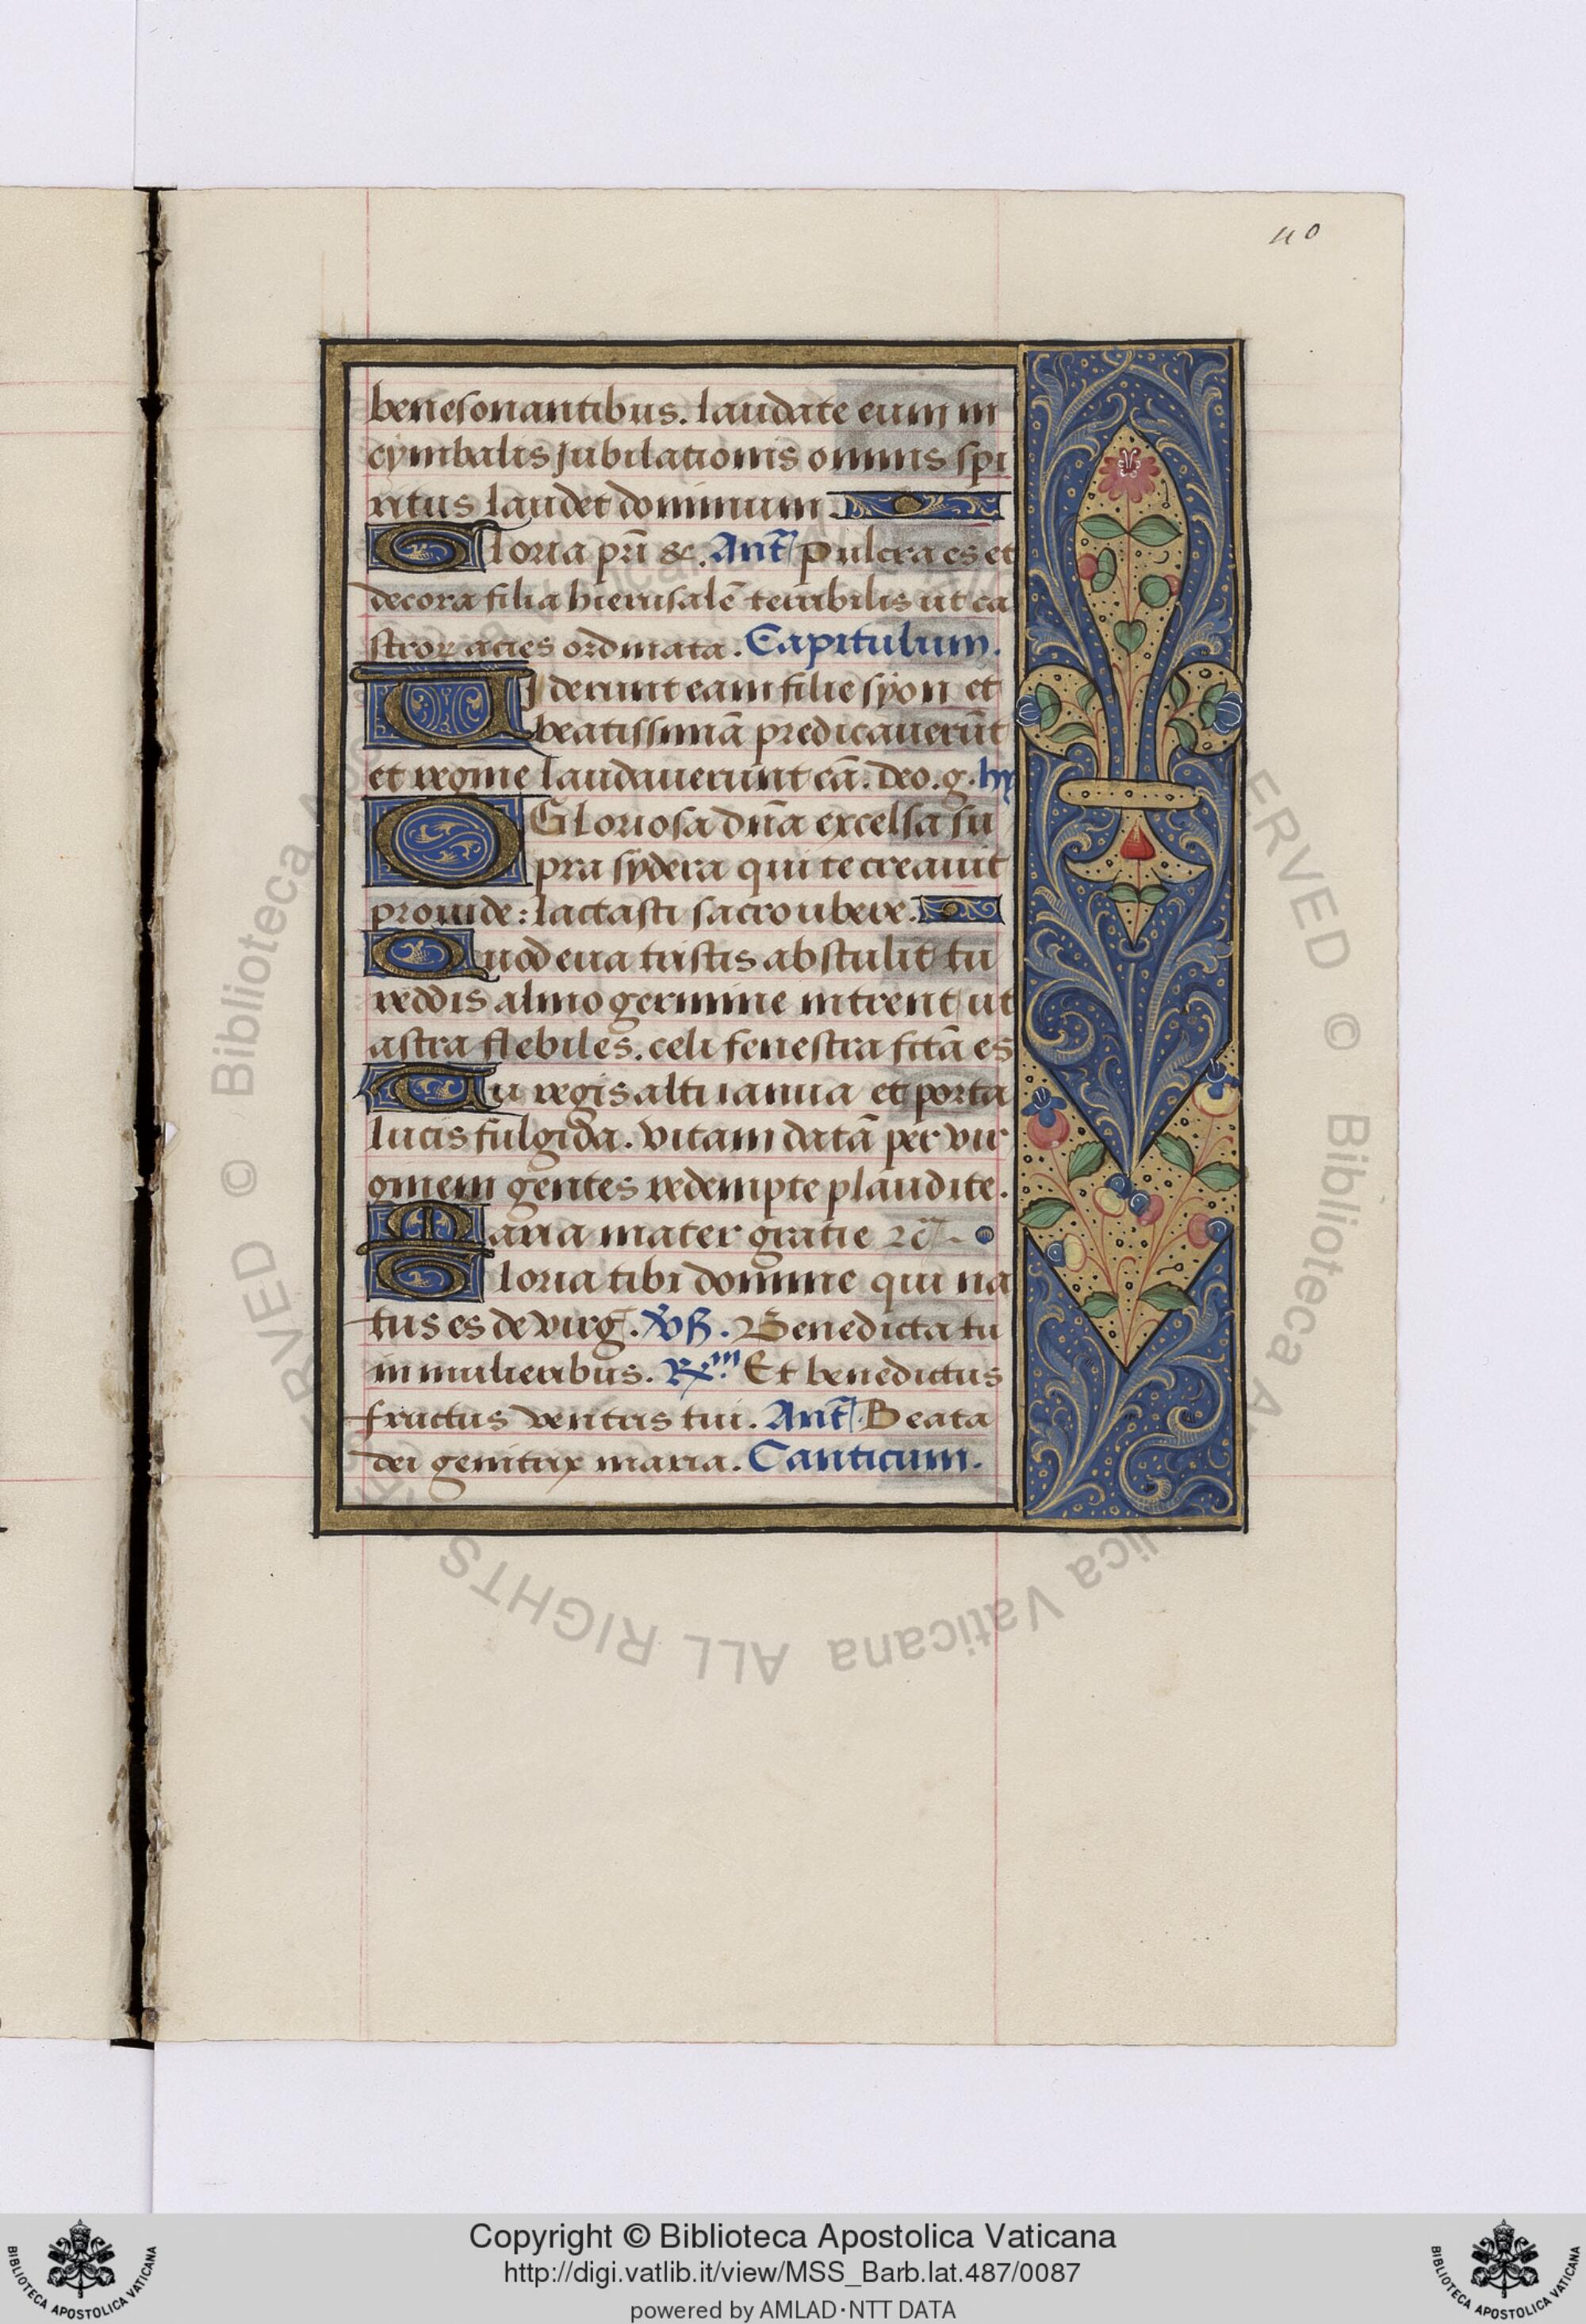 40
benesonantibus. laudate eum in
cymbalis jubilationis omnis spi
ritus laudet dominum.
Gloria pri̅ &. Ant̅ Pulcra es et
decora filia hierusale̅ terribilis ut ca
stroꝝ acies ordinata. Capitulum.
Viderunt eam filie syon et
beatissima̅ predicaueru̅t
et regine laudauerunt ea̅. deo. g. hỹ
O Gloriosa dn̅a excelsa su
pra sydera qui te creauit
prouide: lactasti sacro ubere.
Quod eua tristis abstulit tu
reddis almo germine intrent ut
astra flebiles. celi fenestra f̅cta es
Tu regis alti ianua et porta
lucis fulgida. vitam data̅ per vir
ginem gentes redempte plaudite.
Maria mater gratie ⁊c̅
Gloria tibi domine qui na
tus es de virg̅. vß. Benedicta tu
in mulieribus. Rx. Et benedictus
fructus ventris tui. Ant̅ Beata
dei genitrix maria. Canticum.
© Biblioteca Apostolica Vaticana ALL RIGHTS RESERVED
Copyright © Biblioteca Apostolica Vaticana
http://digi.vatlib.it/view/MSS_Barb.lat.487/0087
powered by AMLAD·NTT DATA
BIBLIOTECA APOSTOLICA VATICANA
BIBLIOTECA APOSTOLICA VATICANA